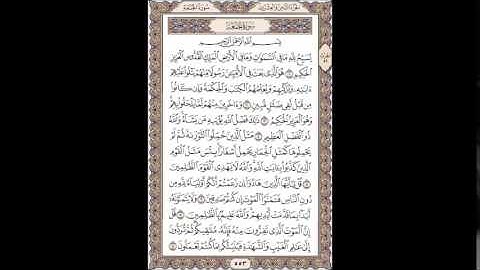 سورة الجمعة
الجزء الثامن والعشرون
سورة الجمعة
بسم الله الرحمن الرحيم
يسبح لله ما في السموت وما في الأرض الملك القدوس العزيز
الحكيم ١ هو الذي بعث في الأمين رسولا منهم يتلوا عليهم
ءايته ويزكيهم ويعلمهم الكتب والحكمة وإن كانوا
من قبل لفي ضلل مبين ٢ وءاخرين منهم لما يلحقوا بهم
وهو العزيز الحكيم ٣ ذلك فضل الله يؤتيه من يشاء والله
ذو الفضل العظيم ٤ مثل الذين حملوا التورىة ثم لم
يحملوها كمثل الحمار يحمل أسفارا بئس مثل القوم
الذين كذبوا بءايت الله والله لا يهدي القوم الظلمين
٥ قل يأيها الذين هادوا إن زعمتم أنكم أولياء لله من
دون الناس فتمنوا الموت إن كنتم صدقين ٦ ولا يتمنونه
أبدا بما قدمت أيديهم والله عليم بالظلمين ٧ قل
إن الموت الذي تفرون منه فإنه ملقيكم ثم تردون
إلى علم الغيب والشهدة فينبئكم بما كنتم تعملون ٨
٥٥٣